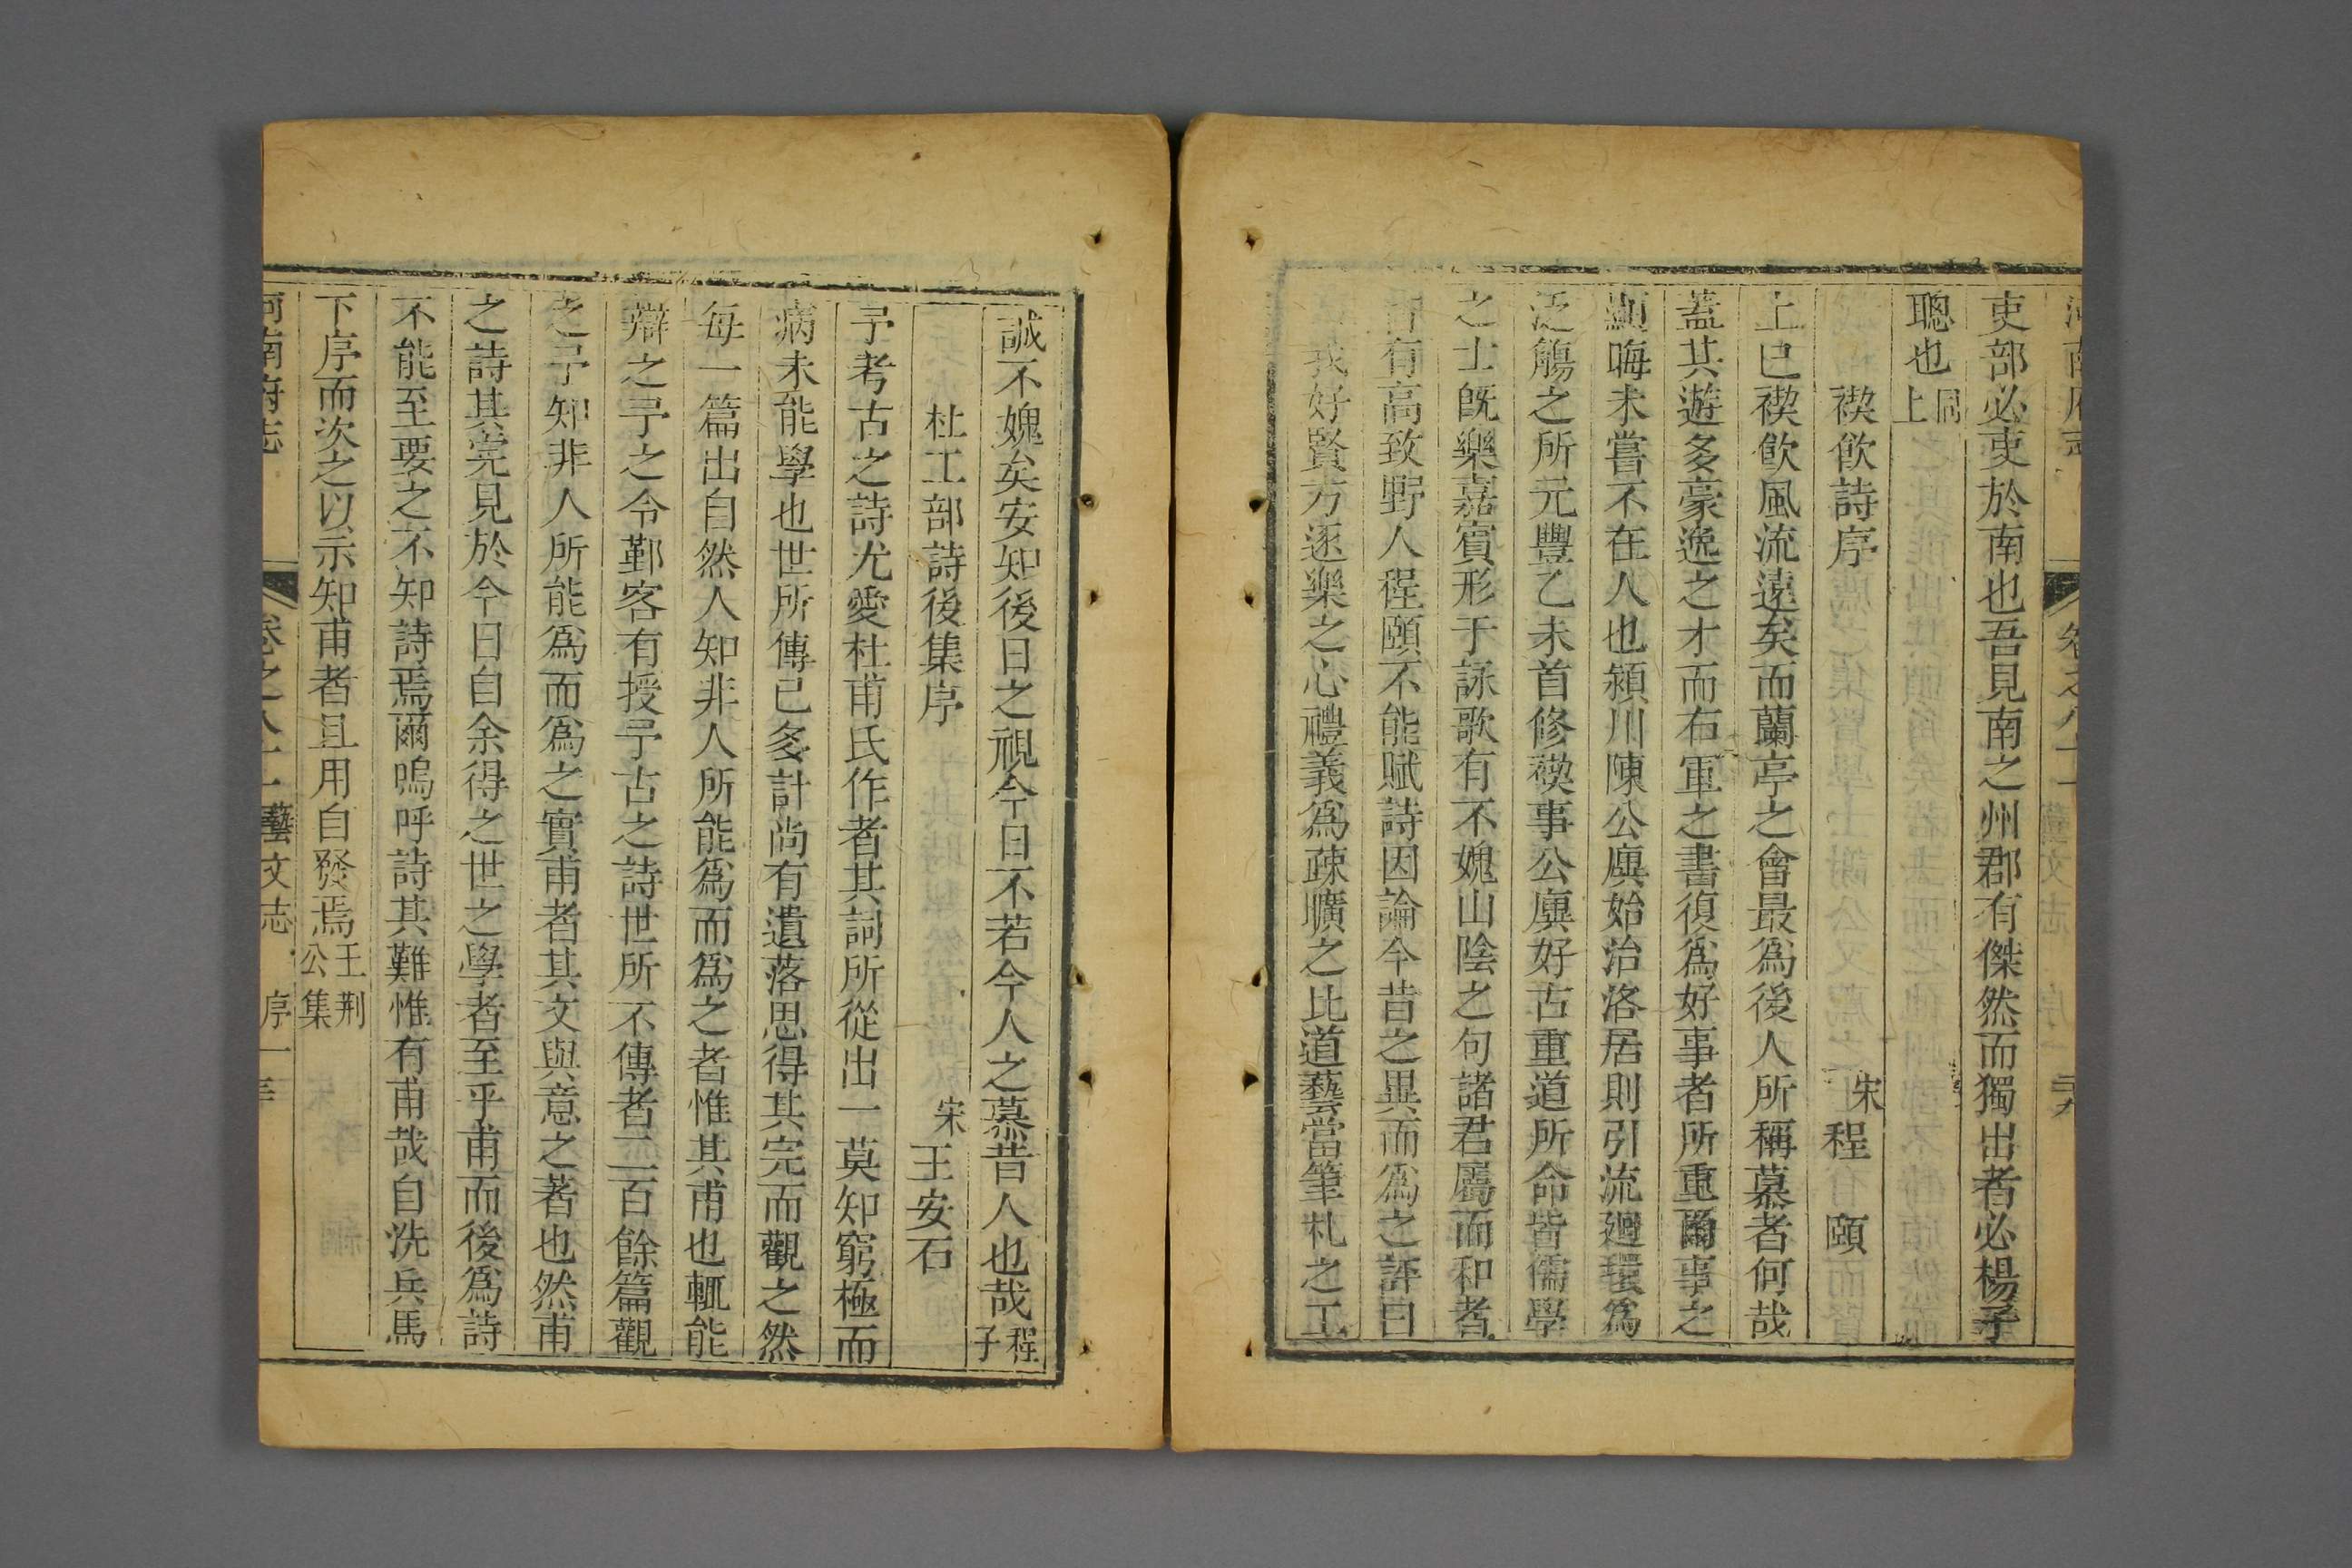 吏部必吏於南也吾見南之州郡有傑然而獨出者必楊子
聰也同上
禊飲詩序
宋程 頤
上巳禊飲風流遠矣而蘭亭之會最爲後人所稱慕者何哉
蓋其遊多豪逸之才而右軍之書復爲好事者所重爾事之
顯晦未嘗不在人也潁川陳公廙始治洛居則引流迴環爲
泛觴之所元豐乙未首修禊事公廙好古重道所命皆儒學
之士旣樂嘉賓形于詠歌有不媿山陰之句諸君屬而和者
有高致野人程頤不能賦詩因論今昔之異而爲之評曰
我好賢方逐樂之心禮義爲疎曠之比道藝當筆札之工
誠不媿矣安知後日之視今日不若今人之慕昔人也哉程子
杜工部詩後集序
宋王安石
予考古之詩尤愛杜甫氏作者其詞所從出一莫知窮極而
病未能學也世所傳已多計尚有遺落思得其完而觀之然
每一篇出自然人知非人所能爲而爲之者惟其甫也輒能
辯之予之令鄞客有授予古之詩世所不傳者二百餘篇觀
之予知非人所能爲而爲之實甫者其文與意之著也然甫
之詩其完見於今日自余得之世之學者至乎甫而後爲詩
不能至要之不知詩焉爾嗚呼詩其難惟有甫哉自洗兵馬
下序而次之以示知甫者且用自發焉王荆公集
河南府志 卷之八十一 藝文志 序一